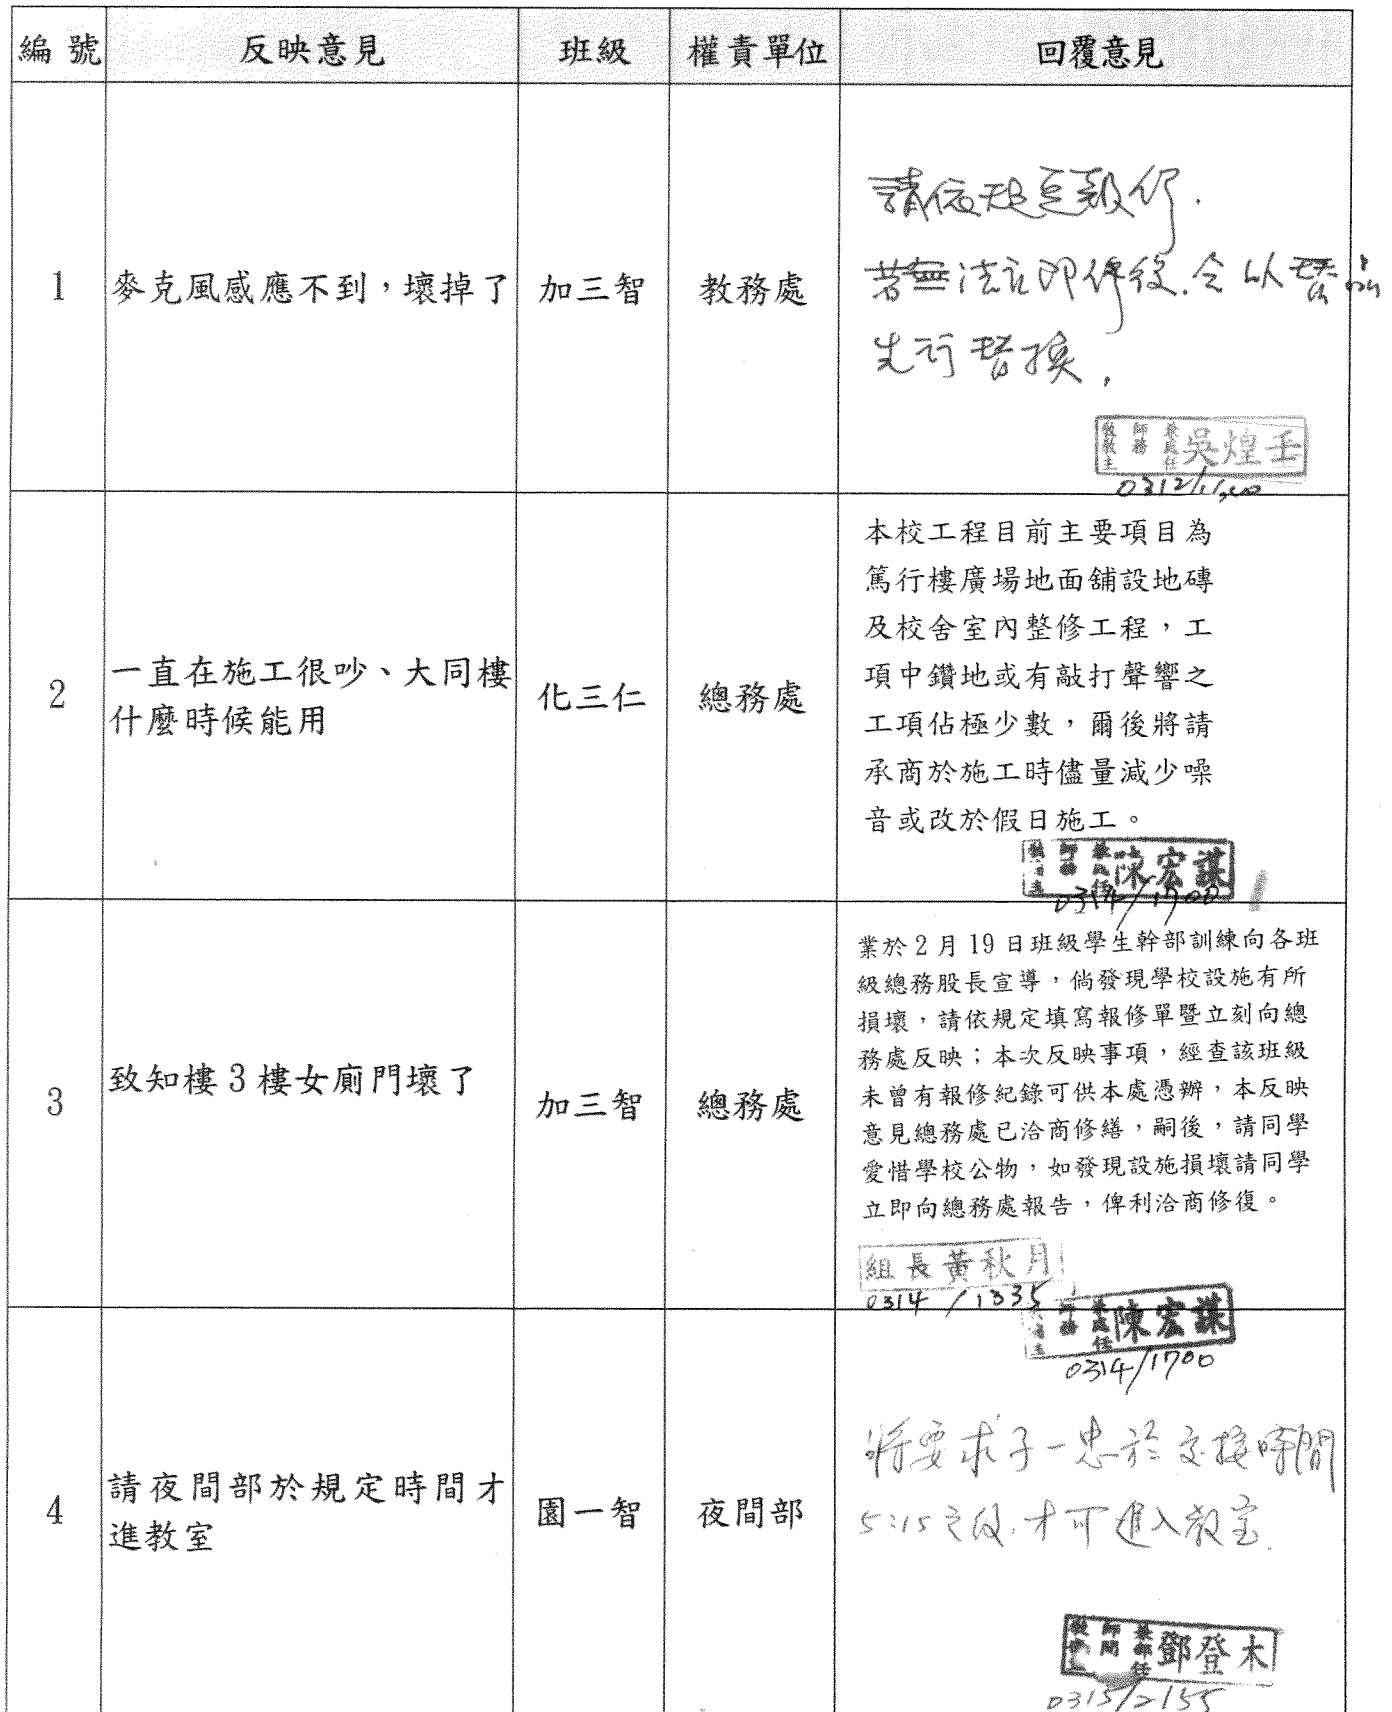 編號 反映意見 班級 權責單位 回覆意見
1 麥克風感應不到，壞掉了 加三智 教務處
請依規定報修.
若無法立即修復.會以替品
先行替換.
教師兼教務處主任 吳煌壬
0312/11:00
2 一直在施工很吵、大同樓
什麼時候能用
化三仁 總務處
本校工程目前主要項目為
篤行樓廣場地面舖設地磚
及校舍室內整修工程，工
項中鑽地或有敲打聲響之
工項佔極少數，爾後將請
承商於施工時儘量減少噪
音或改於假日施工。
陳宏謀
0314/1700
3 致知樓3樓女廁門壞了 加三智 總務處
業於2月19日班級學生幹部訓練向各班
級總務股長宣導，倘發現學校設施有所
損壞，請依規定填寫報修單暨立刻向總
務處反映；本次反映事項，經查該班級
未曾有報修紀錄可供本處憑辦，本反映
意見總務處已洽商修繕，嗣後，請同學
愛惜學校公物，如發現設施損壞請同學
立即向總務處報告，俾利洽商修復。
組長黃秋月
0314/1335
陳宏謀
0314/1700
4 請夜間部於規定時間才
進教室
園一智 夜間部
將要求子一忠於交接時間
5:15之後.才可進入教室.
鄧登木
0315/2155